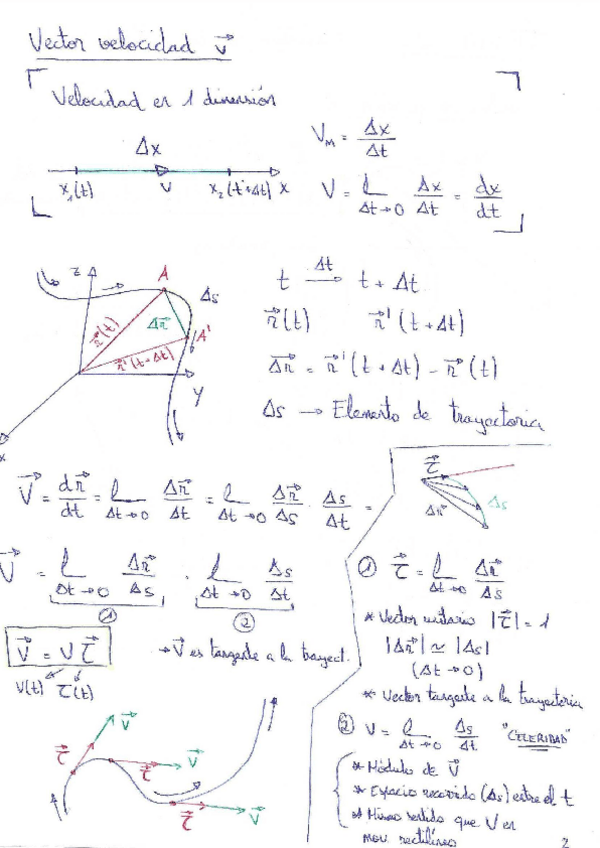 Vector velocidad v⃗
Velocidad en 1 dimensión
Δx
x₁(t) v x₂(t+Δt) x
V_M = Δx/Δt
V = l_{Δt→0} Δx/Δt = dx/dt
z A Δs
r⃗(t) Δr⃗ A'
r⃗'(t+Δt)
y
x
t —Δt→ t + Δt
r⃗(t) r⃗'(t+Δt)
Δr⃗ = r⃗'(t+Δt) - r⃗(t)
Δs → Elemento de trayectoria
V⃗ = dr⃗/dt = l_{Δt→0} Δr⃗/Δt = l_{Δt→0} Δr⃗/Δs · Δs/Δt =
V⃗ = l_{Δt→0} Δr⃗/Δs · l_{Δt→0} Δs/Δt
① ②
V⃗ = V τ⃗
→ V⃗ es tangente a la trayect.
V(t) τ⃗(t)
τ⃗ V⃗
τ⃗ V⃗
τ⃗ V⃗
τ⃗
Δs
Δr⃗
① τ⃗ = l_{Δt→0} Δr⃗/Δs
* Vector unitario |τ⃗| = 1
|Δr⃗| ≃ |Δs|
(Δt→0)
* Vector tangente a la trayectoria
② V = l_{Δt→0} Δs/Δt "CELERIDAD"
* Módulo de V⃗
* Espacio recorrido (Δs) entre el t
* Mismo sentido que V en
mov. rectilíneo
2